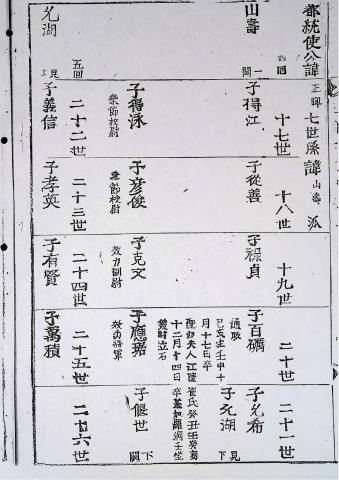 都統使公諱正暉七世孫諱山壽派
十七世
十八世
十九世
二十世
二十一世
山壽
子得江
子從善
子祿貞
子百礪
通政
己亥生壬申十
月十七日卒
配淑夫人江陵
崔氏癸丑生癸
十二月十四日卒墓加羅洞壬坐
雙封立石
子允希
子允湖
見下
子得泳
秉節校尉
子彦俊
秉節校尉
子克文
效力副尉
子應琚
效力將軍
子偃世
下
五囘
二十二世
二十三世
二十四世
二十五世
二十六世
允湖
見上
子義信
子孝英
子有賢
子萬積